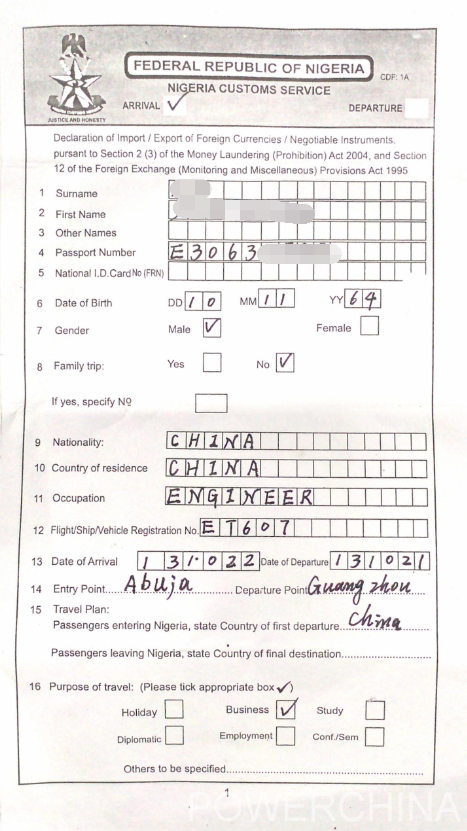 FEDERAL REPUBLIC OF NIGERIA
CDF: 1A
NIGERIA CUSTOMS SERVICE
ARRIVAL ✓
DEPARTURE
JUSTICE AND HONESTY
Declaration of Import / Export of Foreign Currencies / Negotiable Instruments,
pursuant to Section 2 (3) of the Money Laundering (Prohibition) Act 2004, and Section
12 of the Foreign Exchange (Monitoring and Miscellaneous) Provisions Act 1995
1 Surname
2 First Name
3 Other Names
4 Passport Number E3063
5 National I.D.Card No (FRN)
6 Date of Birth DD 10 MM 11 YY 64
7 Gender Male ✓ Female
8 Family trip: Yes No ✓
If yes, specify No
9 Nationality: CHINA
10 Country of residence CHINA
11 Occupation ENGINEER
12 Flight/Ship/Vehicle Registration No. ET607
13 Date of Arrival 131022 Date of Departure 131021
14 Entry Point Abuja Departure Point Guangzhou
15 Travel Plan:
Passengers entering Nigeria, state Country of first departure China
Passengers leaving Nigeria, state Country of final destination
16 Purpose of travel: (Please tick appropriate box ✓)
Holiday Business ✓ Study
Diplomatic Employment Conf./Sem
Others to be specified
1
POWERCHINA